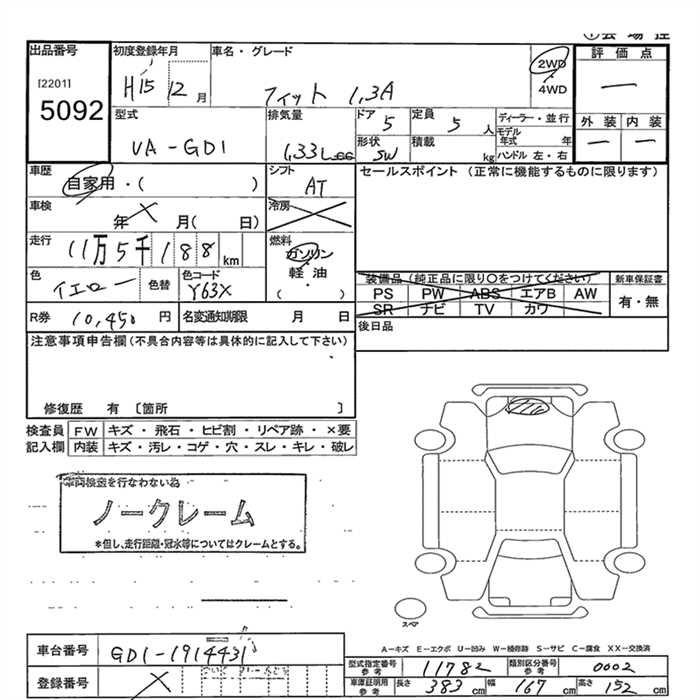 出品番号
[2201]
5092
初度登録年月
H15 12 月
車名・グレード
フィット 1,3A
2WD
4WD
評価点
―
外装 内装
― ―
型式
UA-GD1
排気量
1,33L cc
ドア 5
形状 SW
定員 5 人
積載 kg
ディーラー・並行
モデル年式 年
ハンドル 左・右
車歴
自家用・( )
シフト
AT
セールスポイント (正常に機能するものに限ります)
車検
年 × 月( 日)
冷房
走行
11万5千188 km
燃料
ガソリン
軽油
( )
色
イエロー
色替
色コード
Y63X
装備品 (純正品に限り〇をつけてください)
PS PW ABS エアB AW
SR ナビ TV カワ
新車保証書
有・無
R券 10,450 円
名変通知期限 月 日
後日品
注意事項申告欄(不具合内容等は具体的に記入して下さい)
修復歴 有 〔箇所 〕
検査員記入欄
FW キズ・飛石・ヒビ割・リペア跡・×要
内装 キズ・汚レ・コゲ・穴・スレ・キレ・破レ
車両検査を行なわない為
ノークレーム
*但し、走行距離・冠水等についてはクレームとする。
スペア
A-キズ E-エクボ U-凹み W-補修跡 S-サビ C-腐食 XX-交換済
車台番号 GD1-1914431
登録番号 ×
型式指定番号 参考 11782
類別区分番号 参考 0002
車庫証明用 参考 長さ 383 cm 幅 167 cm 高さ 152 cm